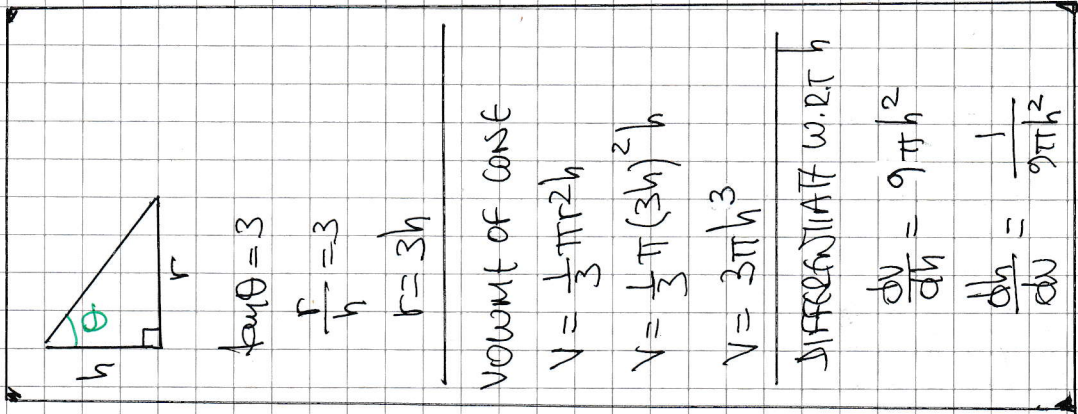 h
θ
r
tanθ = 3
r/h = 3
r = 3h
VOLUME OF CONE
V = 1/3 πr²h
V = 1/3 π(3h)²h
V = 3πh³
DIFFERENTIATE W.R.T h
dV/dh = 9πh²
dh/dV = 1/9πh²